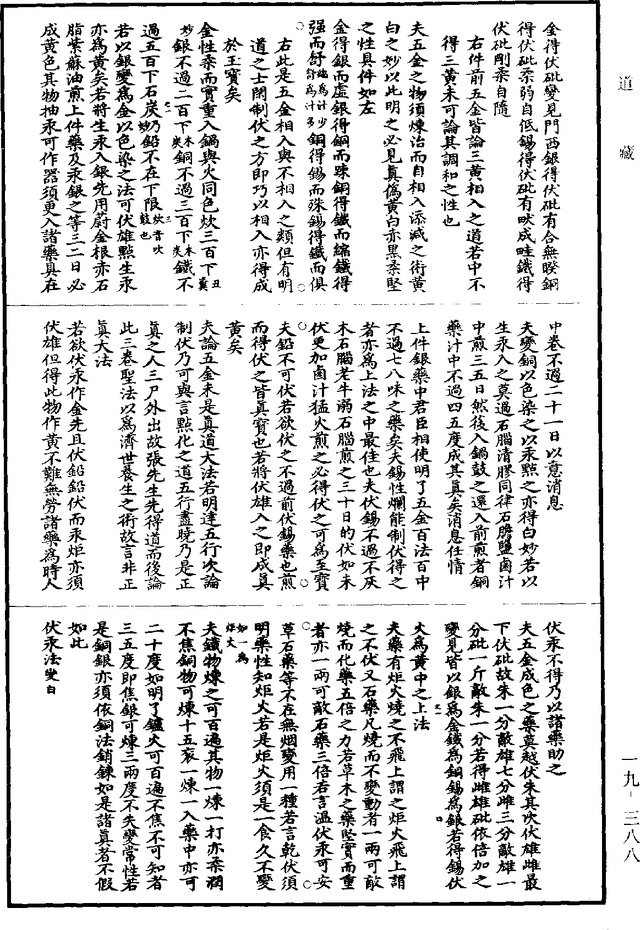 道藏
金得伏砒變見門西銀得伏砒有合無睽銅
得伏砒柔弱自低錫得伏砒有畎成畦鐵得
伏砒剛柔自隨
右件前五金皆論三黃相入之道若中不
得三黃未可論其調和之性也
夫五金之物須煉冶而自相入添減之術黃
白之妙以此明之必見真偽黃白亦黑柔堅
之性具件如左
金得銀而虛銀得銅而踈銅得鐵而縮鐵得
强而舒銅得錫而殊錫得鐵而俱
右此是五金相入與不相入之類但有明
道之士閑制伏之方即巧以相入亦得成
於王寶矣
金性柔而實重入鍋與火同色炊三百下
銀不過二百下銅不過三百下鐵不
過五百下石炭乃鉛不在下限
若以銀變為金以色染之法可伏雄點生汞
亦為黃矣若將生汞入銀先用蔚金根亦石
脂紫蘇油煎上件藥及汞銀之等三二日必
成黃色其物抽汞可作器須更入諸藥真在
中卷不過二十一日以意消息
夫變銅以色染之以汞點之亦得白妙若以
生汞入之莫過石腦清膠同律石膽鹽鹵汁
中煎三五日然後入鍋鼓之還入前煎者銅
藥汁中不過四五度成其真矣消息任情
上件銀藥中君臣相使明了五金百法百中
不過七八味之藥矣夫錫性爛能制伏得之
者亦為上法之中最佳也夫伏錫不過不灰
木石腦老牛溺石腦煎之三十日的伏如未
伏更加鹵汁猛火煎之必得伏之可為至寶
夫鉛不可伏若欲伏之不過前伏錫藥也煎
而得伏之皆真寶也若將伏雄入之即成真
黃矣
夫論五金末是真道大法若明達五行次論
制伏乃可與言點化之道五行盡曉乃是正
真之人三尸外出故張先生先得道而後論
此三卷聖法以為濟世養生之術故言非正
真大法
若欲伏汞作金先且伏鉛鉛伏而汞炬亦須
伏雄但得此物作黃不難無勞諸藥為時人
伏汞不得乃以諸藥助之
夫五金成色之藥莫越伏朱其次伏雄雌最
下伏砒故朱一分敵雄七分雌三分敵雄一
分砒一斤敵朱一分若得雌雄砒依倍加之
變見皆以銀為金鐵為銅錫為銀若得錫伏
火為黃中之上法
夫藥有炬火燒之不飛上謂之炬火飛上謂
之不伏又石藥凡燒而不變動者一兩可敵
燒而化藥五倍之力若草木之藥堅實而重
者亦一兩可敵石藥三倍右言溫伏汞可安
草石藥等不在無烟變用一種若言乾伏須
明藥性知炬火若是炬火須是一食久不變
如一為炬火
夫鐵物煉之可百遍其物一煉一打亦柔潤
不焦銅物可煉十五衮一煉一入藥中亦可
二十度如明了鑪火可百遍不焦不可知者
三五度即焦銀可煉三兩度不失變常性若
是銅銀亦須依銅法銷鍊如是諸真者不假
如此
伏汞法變白
一九-三八八